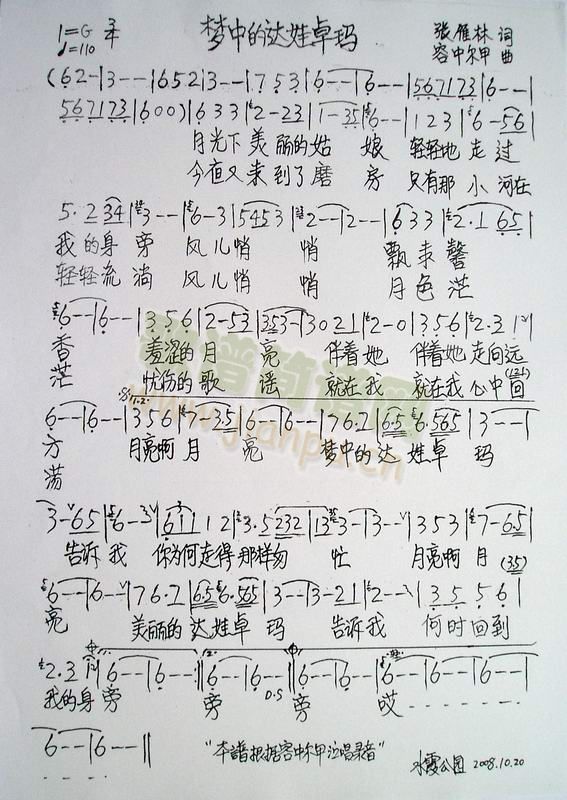 1=G 3/4
♩=110
梦中的达娃卓玛
张雁林 词
容中尔甲 曲
(62-|3--|1652|3--|1753|6--|6--|567173|6--|
567173|600)|633|2-23|1-35|6--|123|6-56|
月光下 美 丽的 姑 娘 轻轻地 走 过
今夜又 来 到了 磨 房 只有那 小 河在
5·234|3--|6-3|5453|2--|2--|633|2·165|
我的身 旁 风儿悄 悄 飘来 馨
轻轻流 淌 风儿悄 悄 月色 茫
6--|6--|356|2-53|353-|3021|2-0|356|2·31|
香 羞涩的 月 亮 伴着她 伴着她 走向远
茫 忧伤的 歌 谣 就在我 就在我 心中回
6--|6--|356|7-35|6--|6--|76·2|6·56·565|3--|
方 月亮啊 月 亮 梦中的 达 娃卓 玛
荡
3-65|6-3|6112|3·5232|133-|3--|353|7-65|
告诉 我 你为何走得 那样匆 忙 月亮啊 月
(35)
6--|6--|76·2|6·56·565|3--|3-21|2--|3556|
亮 美丽的 达娃卓 玛 告诉 我 何时回到
2·31|6--|6--:|6--|6--|6--|6--|6--|6--|6--|
我的身 旁 旁 D.S 旁 哎
6--|6--||
"本谱根据容中尔甲演唱录音"
水霞公园 2008.10.20